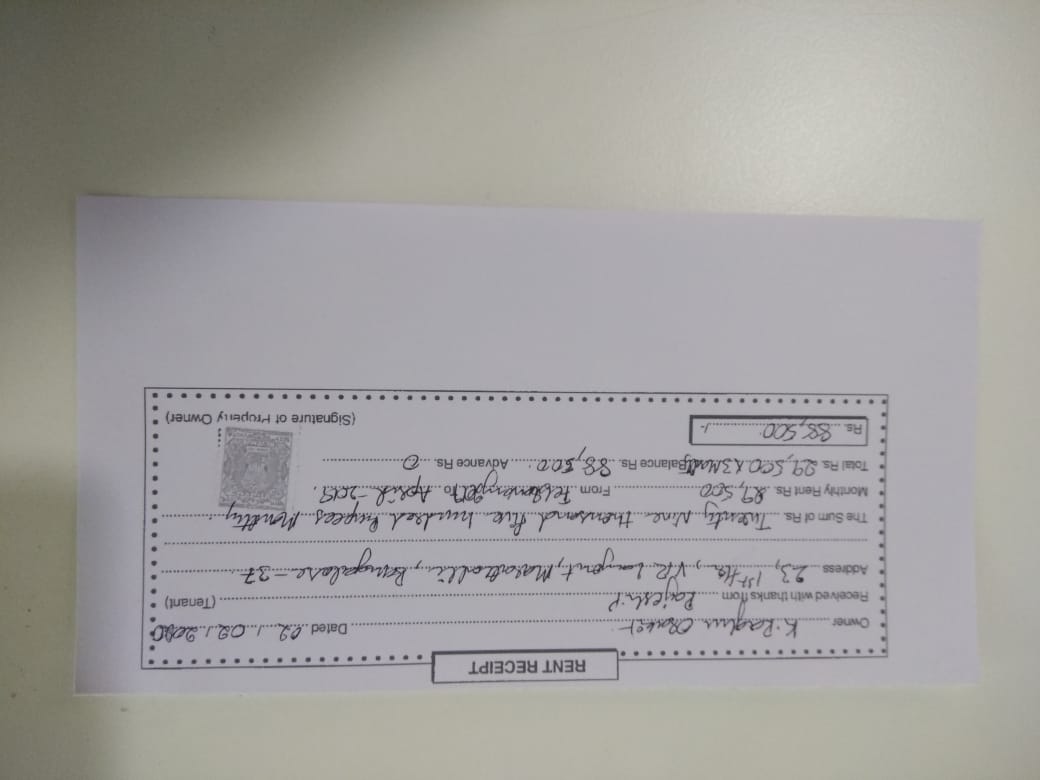 RENT RECEIPT
Owner K. Raghu Dated 02 / 02 / 2020
Received with thanks from Rajesh.P (Tenant)
Address 23, 1st , VR Layout, Marattalli, Bangalore - 37
The Sum of Rs. Twenty Nine thousand five hundred Rupees Monthly
Monthly Rent Rs. 29,500 From February 2019 To April - 2019.
Total Rs. 29,500 X 3 Balance Rs. 88,500 Advance Rs. 0
Rs. 88,500 /-
(Signature of Property Owner)